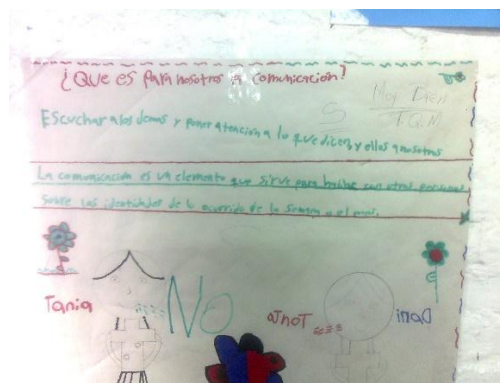 ¿Que es para nosotros la comunicación?
Muy Bien
S
T.Q.M
Escuchar a los demas y poner atención a lo que dicen y ellos a nosotros
La comunicación es un elemento que sirve para hablar con otras personas
sobre las identidades de lo ocurrido de la semana o el
Tania
No
Dani